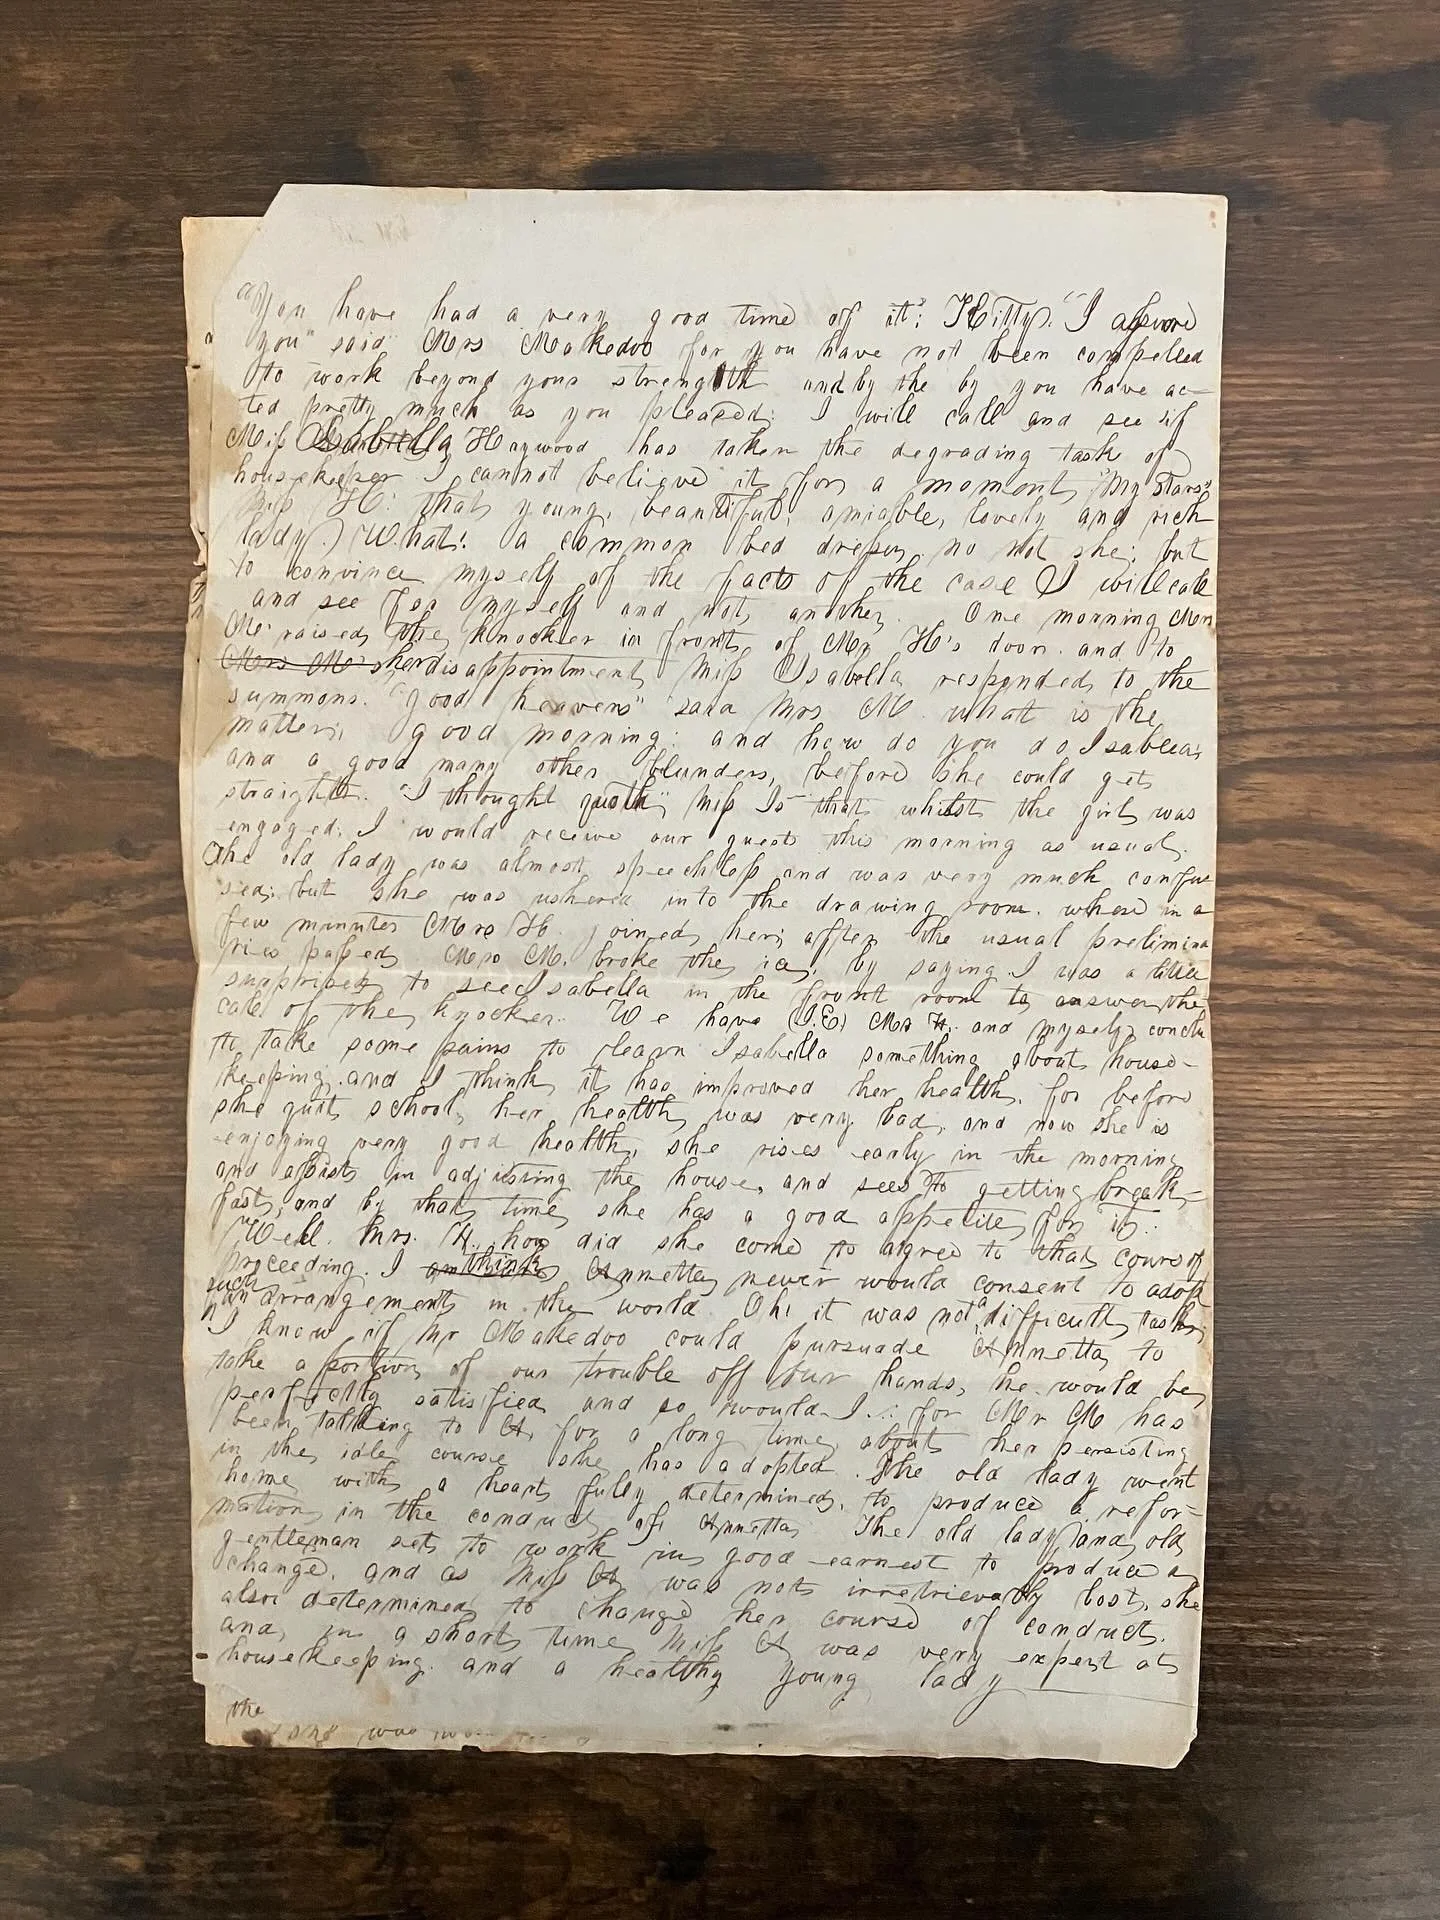 "You have had a very good time of it; Kitty." "I assure
you" said Mrs Makedoo for you have not been compelled
to work beyond your strength and by the by you have ac-
ted pretty much as you pleased; I will call and see if
Miss Isabella Haywood has taken the degrading task of
housekeeper I cannot believe it for a moment, "My stars"
Miss H. that, young, beautiful, amiable, lovely and rich
lady.) What! a common bed dresser no not she; but
to convince myself of the facts of the case I will call
and see for myself and not another. One morning Mrs
M. raised the knocker in front of Mr H's door and to
Mrs M's her disappointment Miss Isabella responded to the
summons. "good heavens" said Mrs M. what is the
matter, good morning; and how do you do Isabella,
and a good many other blunders, before she could get
straight. "I thought quoth" Miss Is that whilst the girl was
engaged; I would receive our guests this morning as usual.
The old lady was almost speechless and was very much confu
sed; but she was ushered into the drawing room. where in a
few minutes Mrs H. joined her; after the usual prelimina
ries passed Mrs M. broke the ice, by saying. I was a little
surprised to see Isabella in the front room to answer the
call of the knocker. We have (I.E) Mr H. and myself, conclu
to take some pains to learn Isabella something about house-
keeping. and I think it has improved her health, for before
she quit school, her health was very bad, and now she is
enjoying very good health, she rises early in the morning
and assists in adjusting the house, and sees to getting break-
fast, and by that time she has a good appetite for it.
"Well. Mrs. H. how did she come to agree to that cours of
proceeding. I am think Annetta never would consent to adopt
such
an arrangement in the world. Oh! it was not a difficult task,
I know if Mr Makedoo could pursuade Annetta to
take a portion of our trouble off our hands, he would be
perfectly satisfied and so would I. for Mr M has
been talking to A. for a long time about her persisting
in the idle course she has adopted. The old lady went
home with a heart fully determined, to produce a refor-
mation in the conduct of Annetta The old lady and old
gentleman sets to work in good earnest to produce a
change. and as Miss A was not irretrievably lost, she
also determined to change her course of conduct.
and in a short time Miss A was very expert at
housekeeping. and a healthy young lady
the
and was